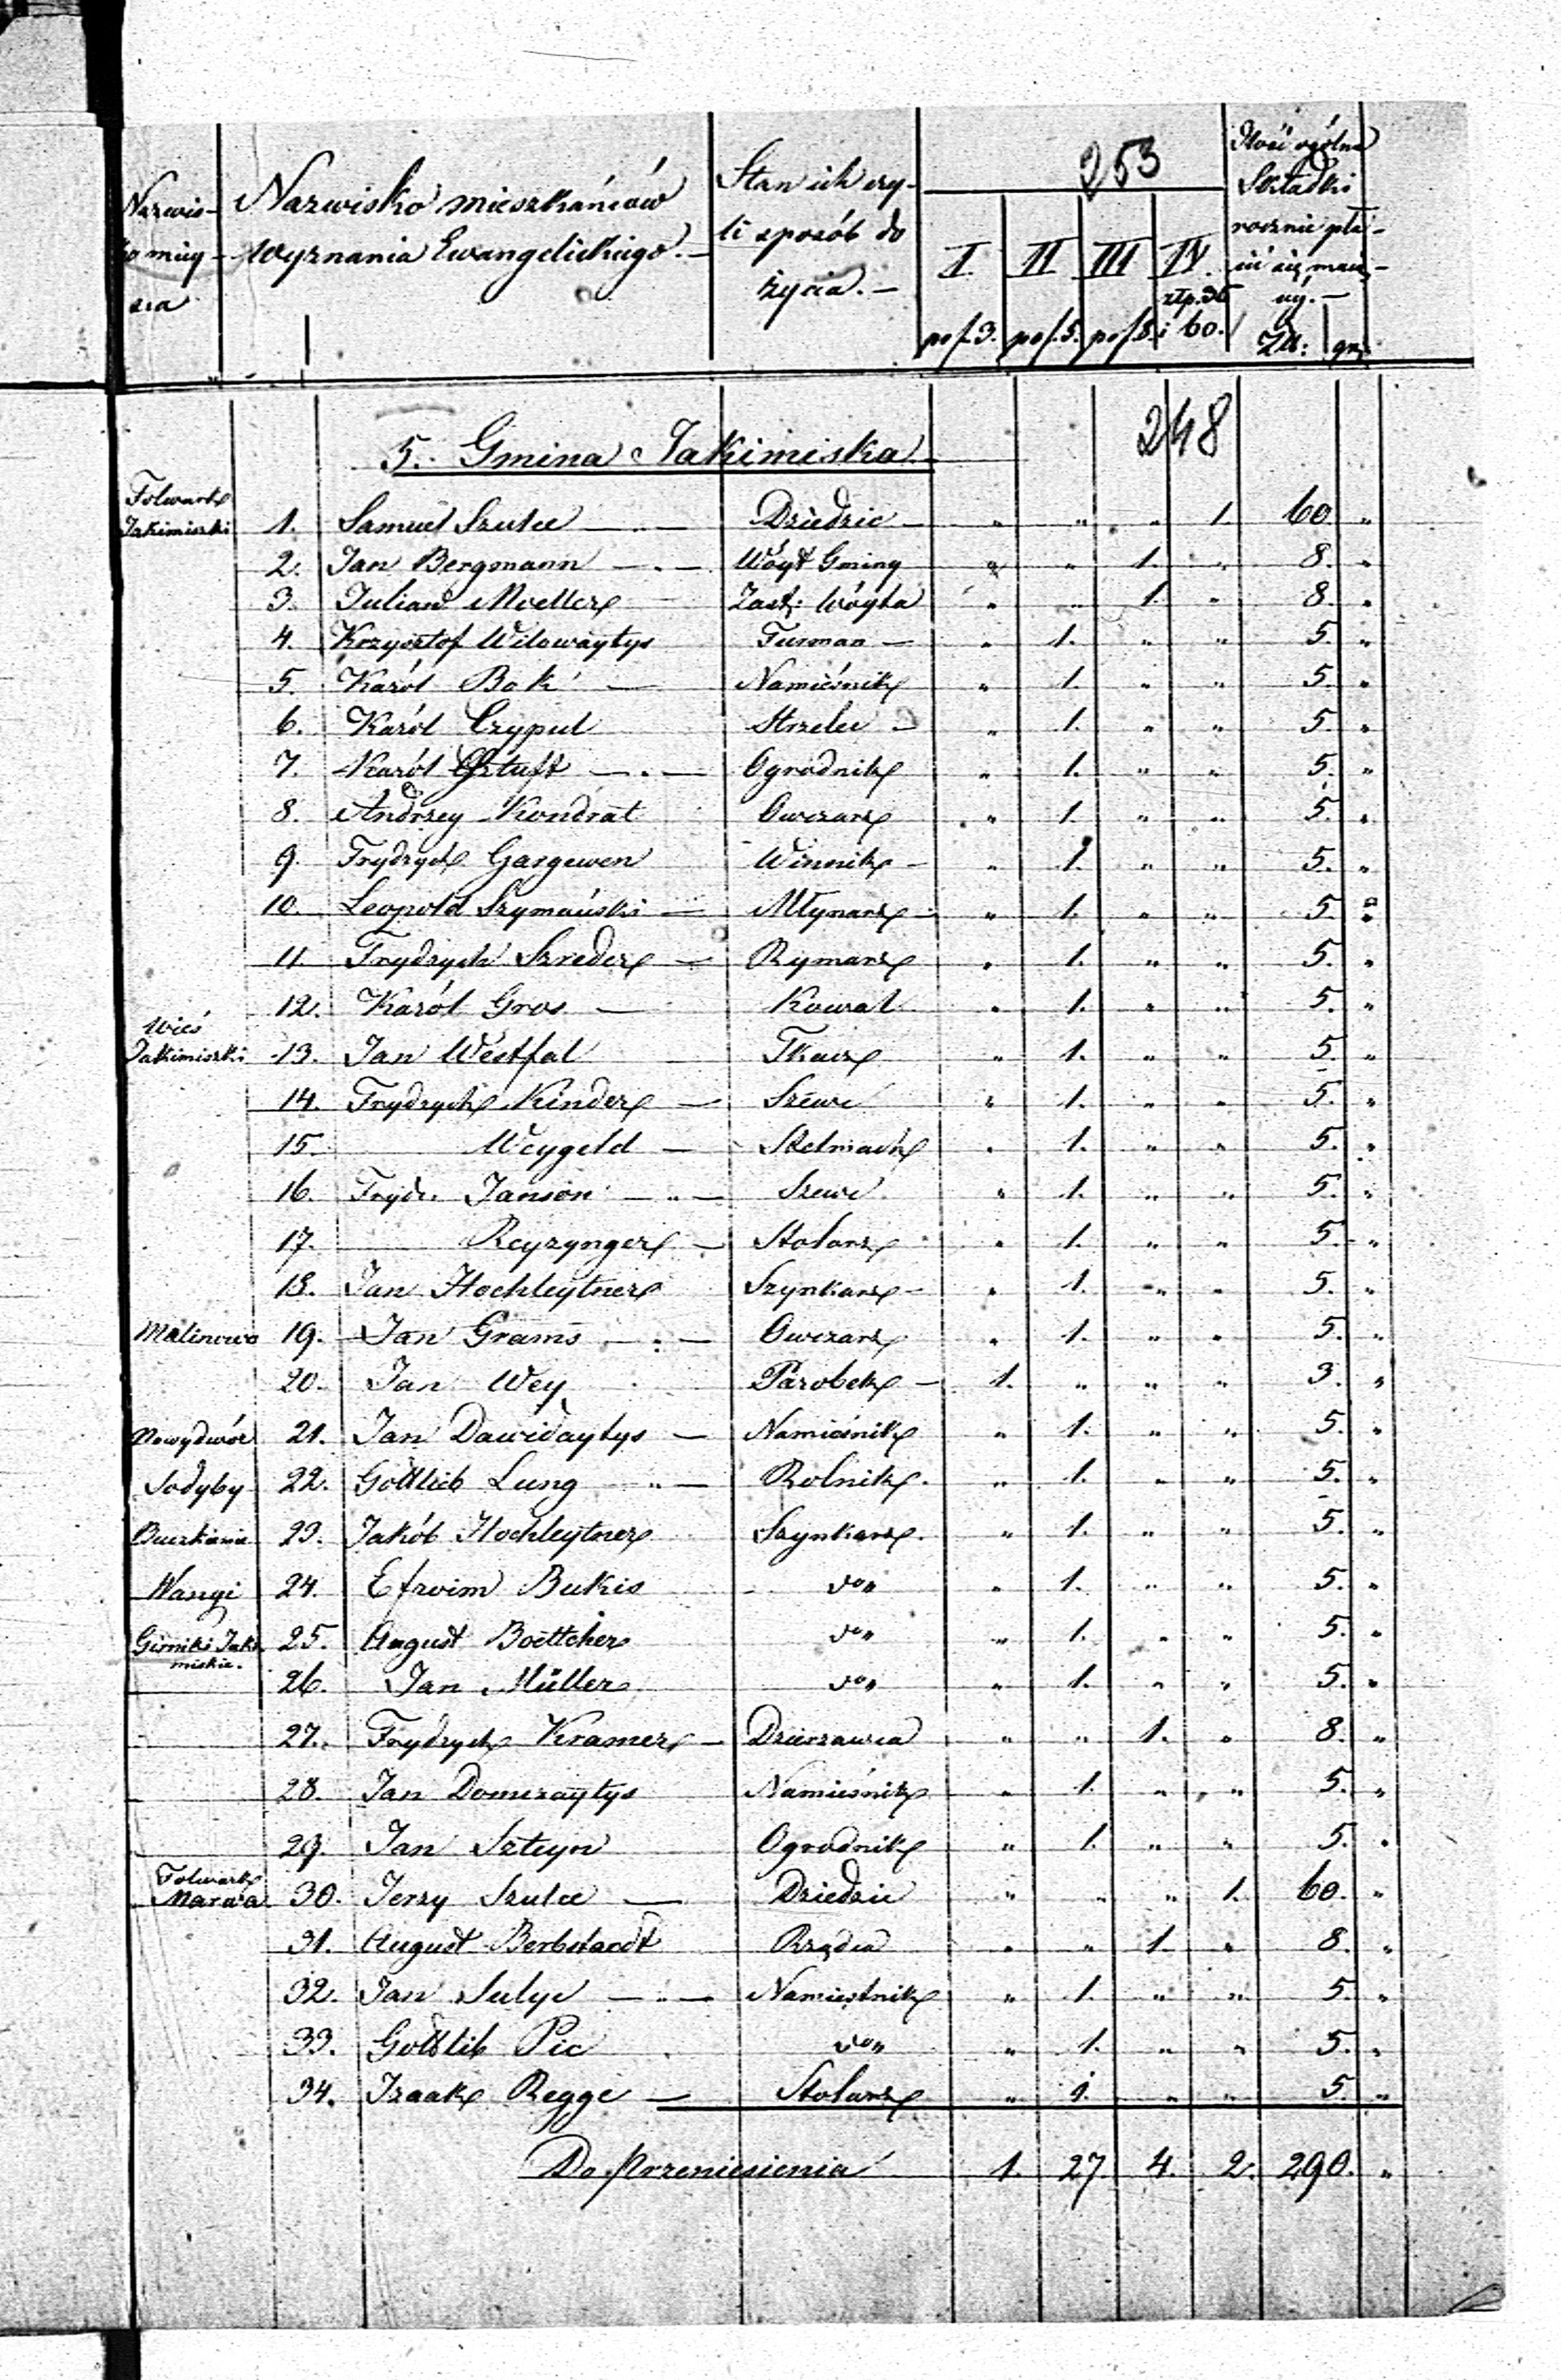 253
Nazwis- Nazwisko mieszkańców Stan ich czy- Ilość ogólna
ko miey- wyznania Ewangelickiego.- li sposób do Składki
sca życia.- rocznie pła-
I. II III IV. cić się mają-
złp. 36 céy.-
po f. 3. po f. 5. po f. 8. i 60. Zł: gr.
5. Gmina Jakimiska 248
Folwark
Jakimiszki 1. Samuel Szulce — Dziedzic — " " " 1. 60 "
2. Jan Bergmann — . — Wóyt Gminy " " 1. " 8. "
3. Julian Moeller Zast: Wóyta " " 1. " 8. "
4. Krzysztof Wilowaytys Furman — " 1. " " 5. "
5. Karól Bok — Namieśnik " 1. " " 5. "
6. Karól Czypul Strzelec — " 1. " " 5. "
7. Karól Sztuft — . — Ogrodnik " 1. " " 5. "
8. Andrzey Kondrat Owczarz " 1. " " 5. "
9. Frydrych Gargewen Winnik — " 1. " " 5. "
10. Leopold Szymański — Młynarz — " 1. " " 5. "
11. Frydrych Szreder — Rymarz " 1. " " 5. "
12. Karól Gros — Kowal " 1. " " 5. "
Wieś
Jakimiszki 13. Jan Westfal Tkacz " 1. " " 5. "
14. Frydrych Kinder — Szewc " 1. " " 5. "
15. Weygeld — Stelmach " 1. " " 5. "
16. Frydr. Janson — " — Szewc " 1. " " 5. "
17. — Reyzynger — Stolarz " 1. " " 5. "
18. Jan Hochleytner Szynkarz — " 1. " " 5. "
Malinowo 19. Jan Grams — : — Owczarz " 1. " " 5. "
20. Jan Wey Parobek — 1. " " " 3. "
Nowydwór 21. Jan Dawidaytys — Namieśnik " 1. " " 5. "
Sodyby 22. Gottlieb Lung " — Rolnik. " 1. " " 5. "
23. Jakób Hochleytner Szynkarz. " 1. " " 5. "
Wangi 24. Efroim Bukis do " 1. " " 5. "
Girniki Jaki 25. August Boettcher do " 1. " " 5. "
miskie. 26. Jan Müller do " 1. " " 5. "
27. Frydrych Kramer — Dzierzawca " " 1. " 8. "
28. Jan Domeraytys Namieśnik " 1. " " 5. "
29. Jan Szteyn Ogrodnik " 1. " " 5. "
Folwark
30. Jerzy Szulce — Dziedzic " " " 1. 60. "
31. August Berbstaedt Rządca " " 1. " 8. "
32. Jan Sulye — " — Namiestnik " 1. " " 5. "
33. Gottlib Pic do " 1. " " 5. "
34. Izaak Regge — Stolarz " 1. " " 5. "
Do przeniesienia 1. 27 4. 2. 290. "